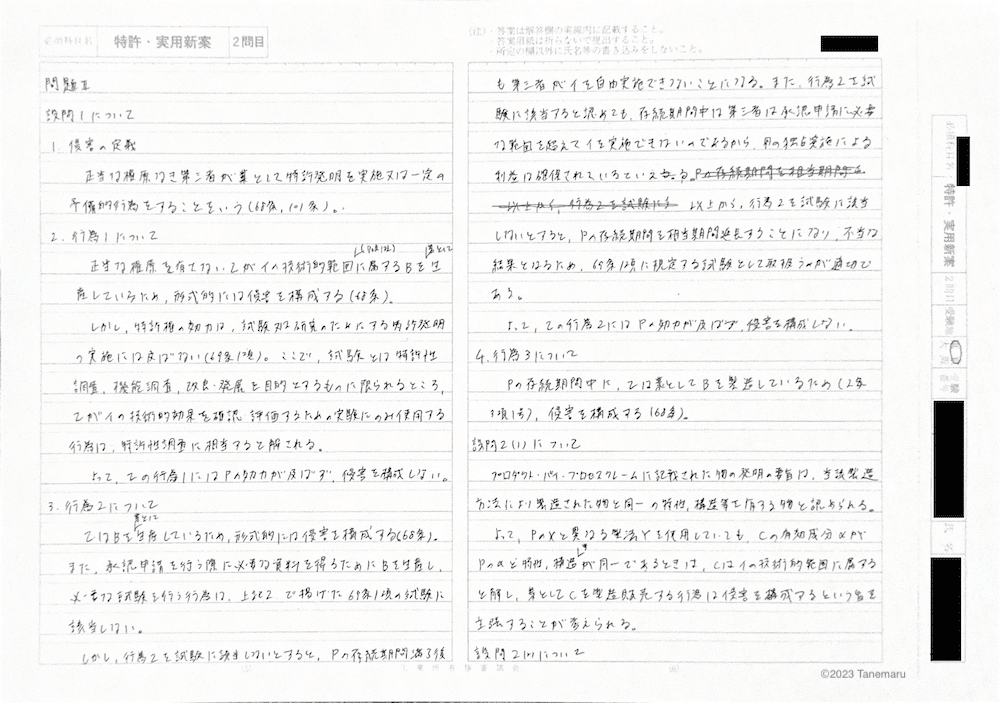 必須科目名 特許・実用新案 2問目
(注)・答案は解答欄の実線内に記載すること。
・答案用紙は折らないで提出すること。
・所定の欄以外に氏名等の書き込みをしないこと。
問題Ⅱ
設問1について
1. 侵害の定義
正当な権原なき第三者が業として特許発明を実施又は一定の
予備的行為をすることをいう(68条, 101条)。
2. 行為1について
正当な権原を有さない乙がイの技術的範囲に属するBを業として生
産しているため, 形式的には侵害を構成する(68条)。
しかし, 特許権の効力は, 試験又は研究のためにする特許発明
の実施には及ばない(69条1項)。ここで, 試験とは特許性
調査, 機能調査, 改良・発展を目的とするものに限られるところ,
乙がイの技術的効果を確認 評価するための実験にのみ使用する
行為は, 特許性調査に相当すると解される。
よって, 乙の行為1にはPの効力が及ばず, 侵害を構成しない。
3. 行為2について
乙はBを業として生産しているため, 形式的には侵害を構成する(68条)。
また, 承認申請を行う際に必要な資料を得るためにBを生産し,
必要な試験を行う行為は, 上記2で掲げた69条1項の試験に
該当しない。
しかし, 行為2を試験に該当しないとすると, Pの存続期間満了後
も第三者がイを自由実施できないことになる。また, 行為2を試
験に該当すると認めても, 存続期間中は第三者は承認申請に必要
な範囲を超えてイを実施できないのであるから, 甲の独占実施による
利益は確保されているといえる。Pの存続期間を相当期間延
以上から, 行為2を試験に 以上から, 行為2を試験に該当
しないとすると, Pの存続期間を相当期間延長することになり, 不当な
結果となるため, 69条1項に規定する試験として取扱うのが適切で
ある。
よって, 乙の行為2にはPの効力が及ばず, 侵害を構成しない。
4. 行為3について
Pの存続期間中に, 乙は業としてBを製造しているため(2条
3項1号), 侵害を構成する(68条)。
設問2(1)について
プロダクト・バイ・プロセスクレームに記載された物の発明の要旨は, 当該製造
方法により製造された物と同一の特性, 構造等を有する物と認められる。
よって, PのXと異なる製法Yを使用していても, Cの有効成分αが
Pのαと特性, 構造等が同一であるときは, Cはイの技術的範囲に属する
と解し, 業としてCを製造販売する行為は侵害を構成するという旨を
主張することが考えられる。
設問2(2)について
工業所有権審議会
特許・実用新案 2問目
©2023 Tanemaru